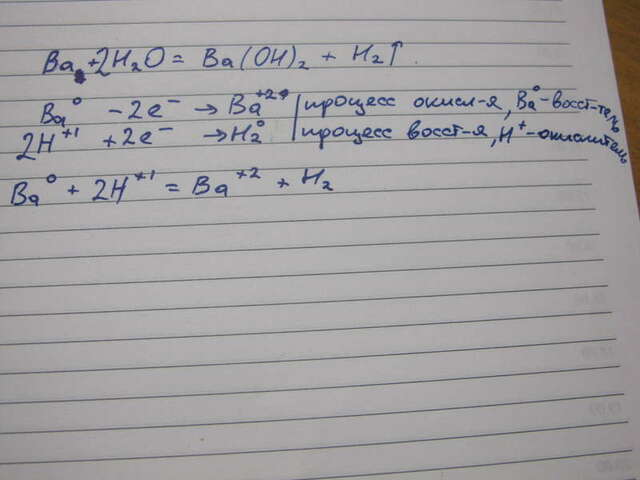 Ba + 2H₂O = Ba(OH)₂ + H₂↑
Ba⁰ - 2e⁻ → Ba⁺² | процесс окисл-я, Ba⁰-восст-тель
2H⁺¹ + 2e⁻ → H₂⁰ | процесс восст-я, H⁺-окислитель
Ba⁰ + 2H⁺¹ = Ba⁺² + H₂